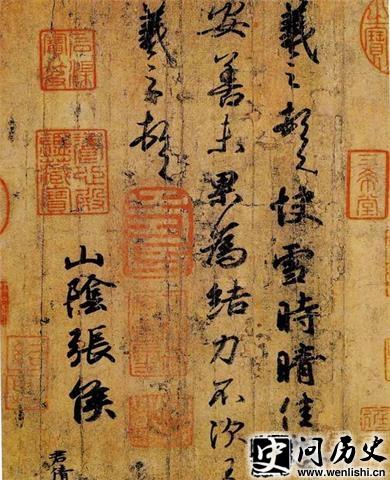 羲之頓首快雪時晴佳
安善未果為結力不次王
羲之頓首
山陰張侯
君倩
三希堂
问历史
www.wenlishi.cn